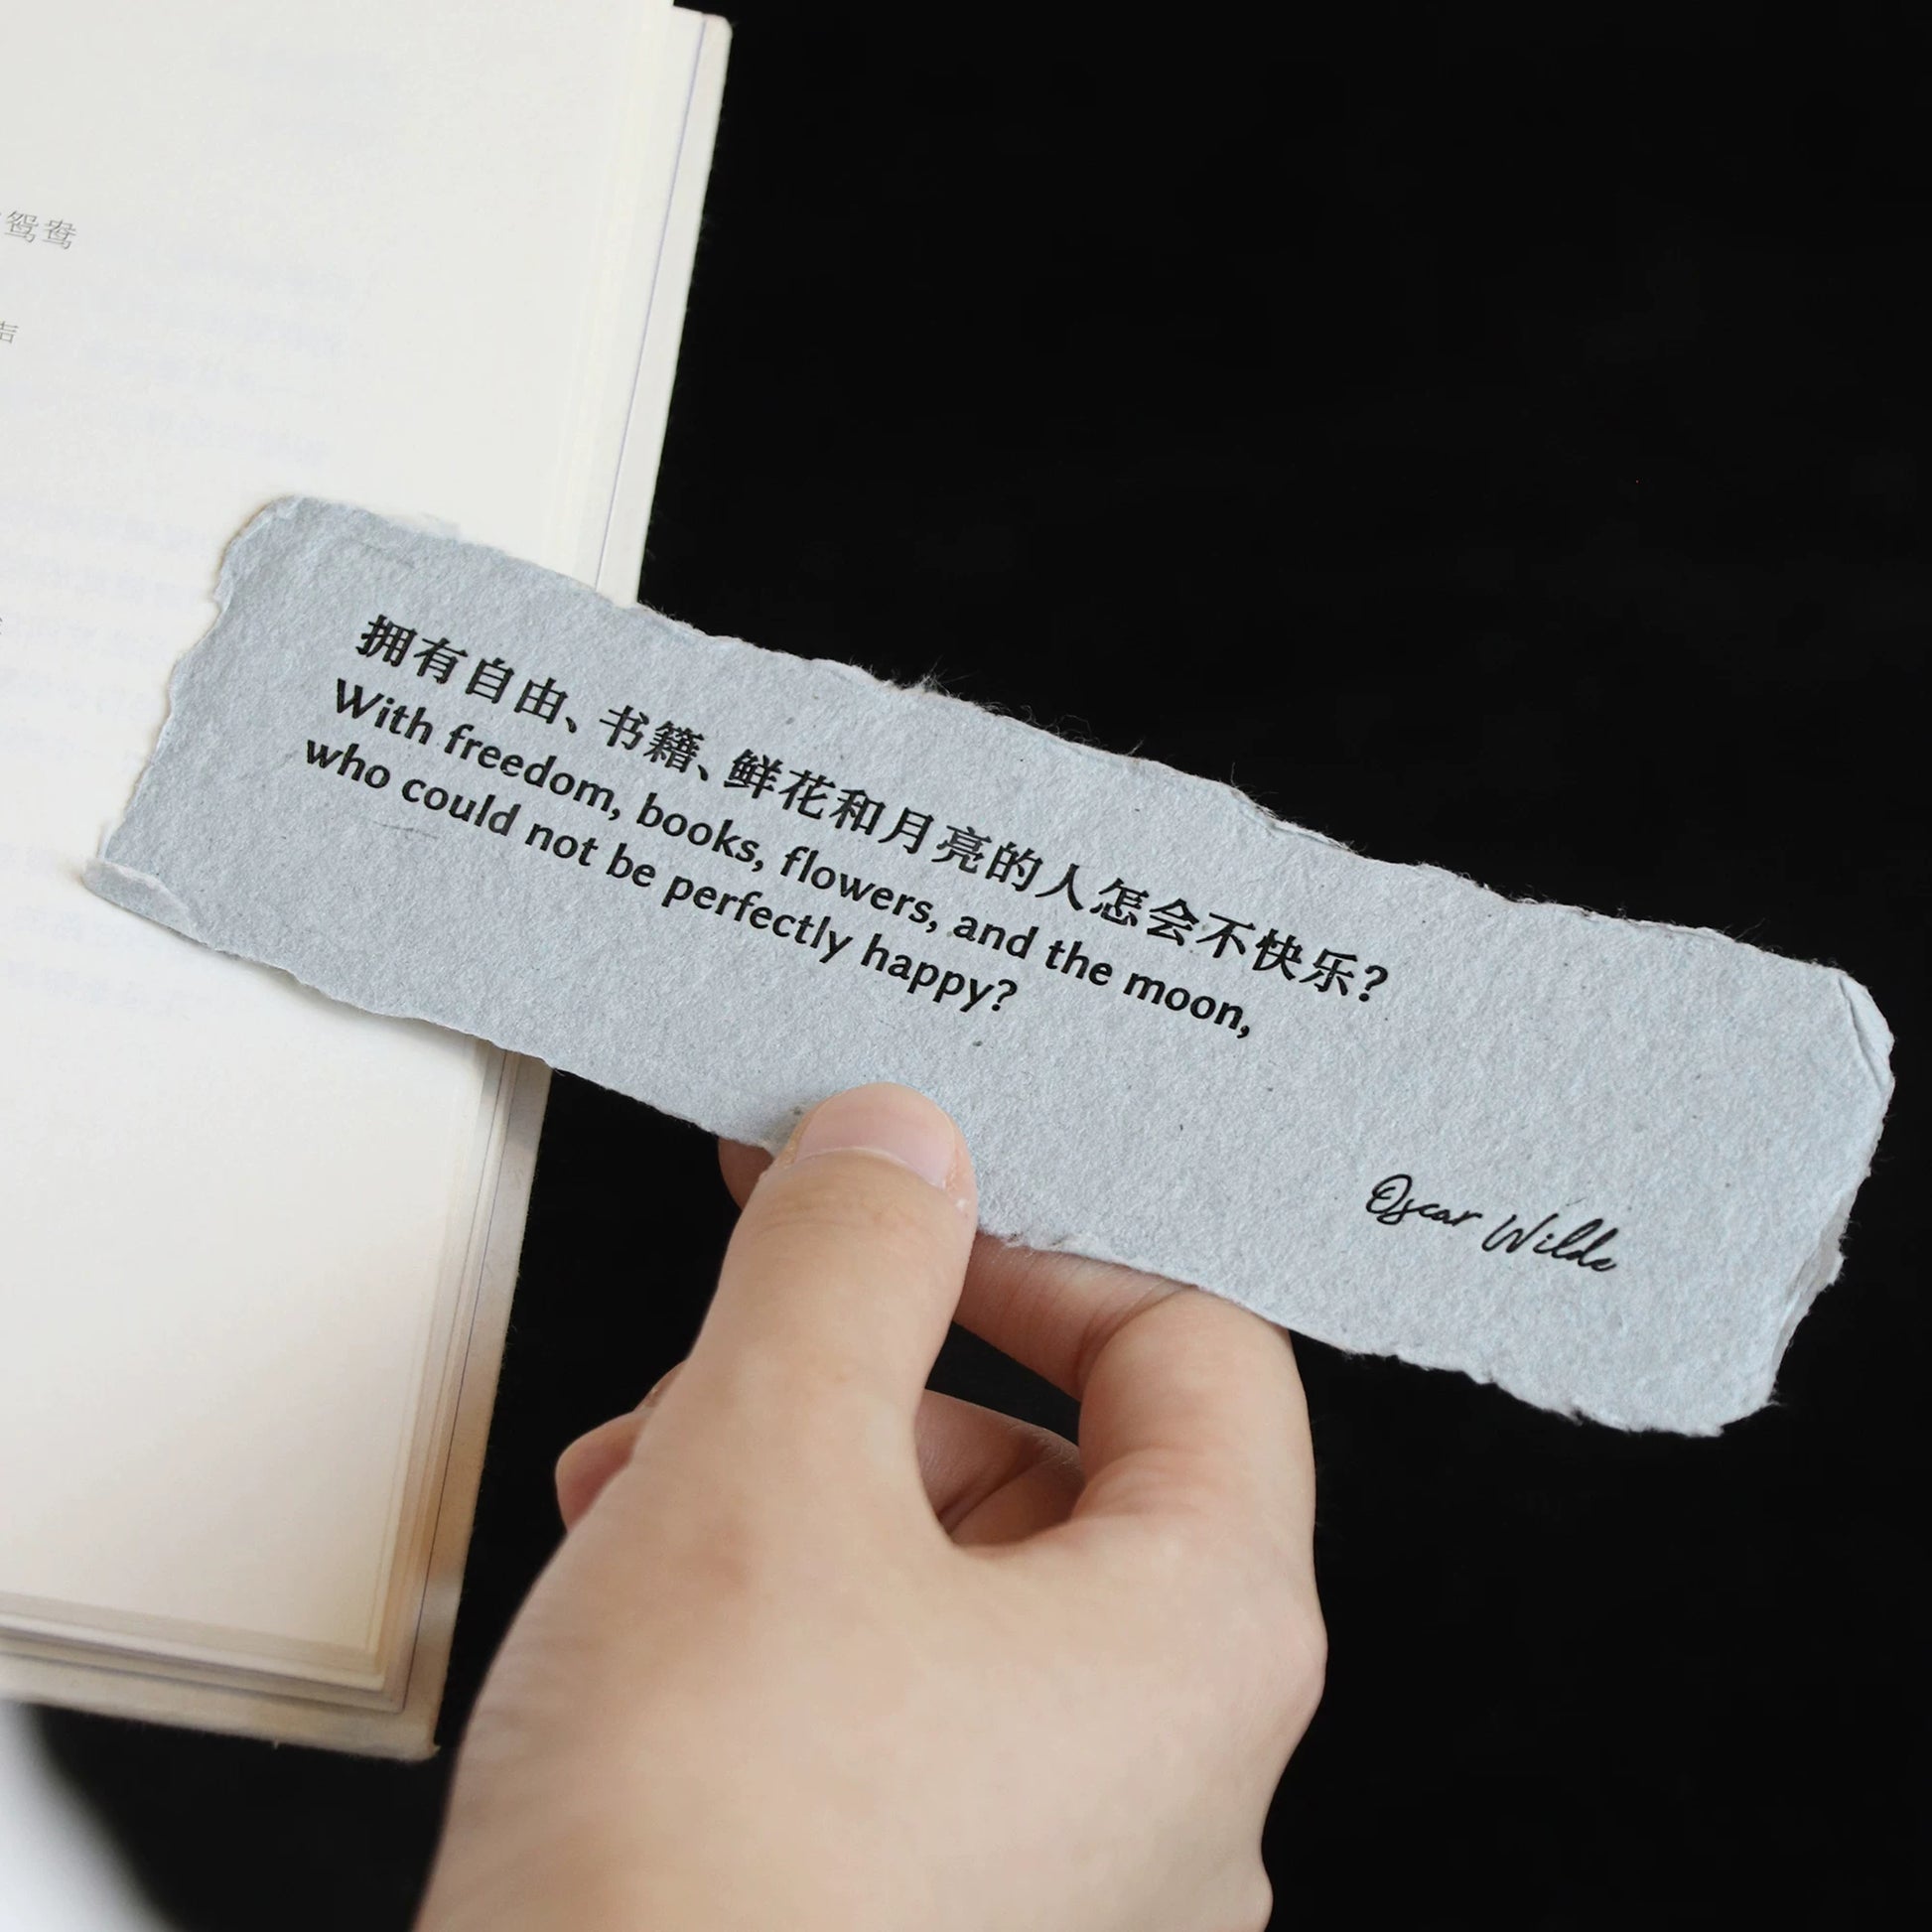 鸳鸯
拥有自由、书籍、鲜花和月亮的人怎会不快乐?
With freedom, books, flowers, and the moon,
who could not be perfectly happy?
Oscar Wilde